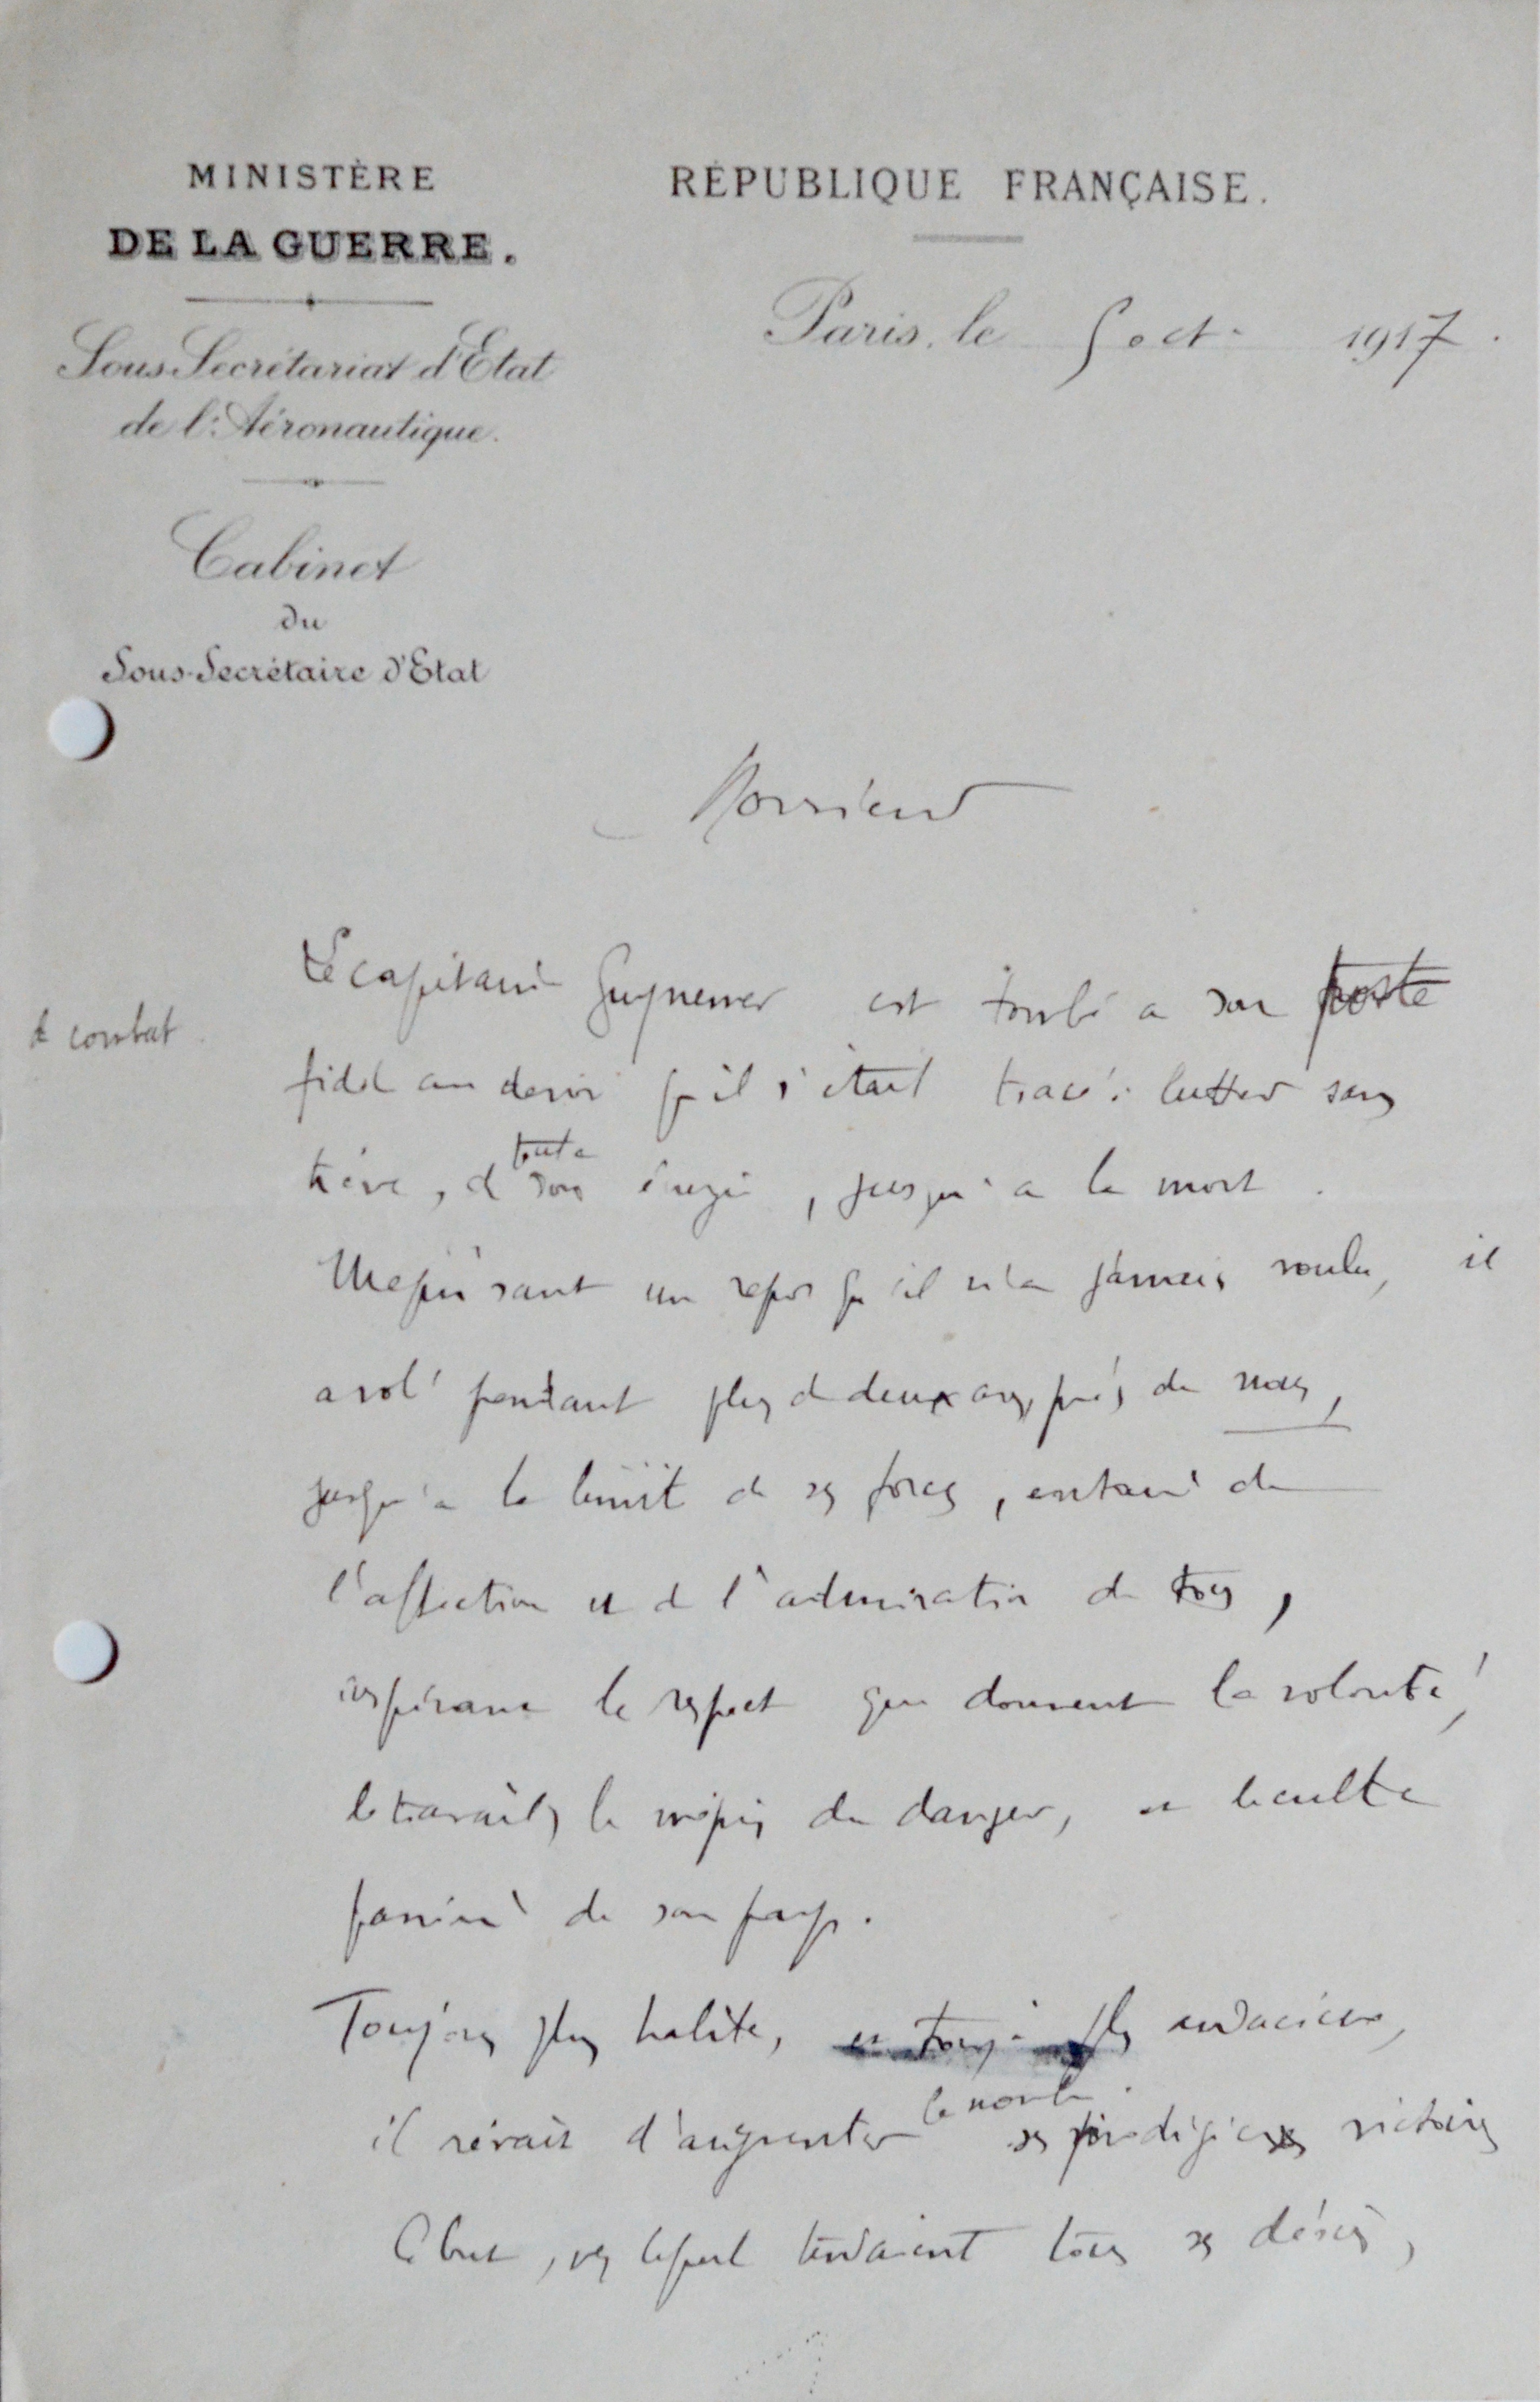 MINISTÈRE
DE LA GUERRE.
Sous-Secrétariat d'Etat
de l'Aéronautique.
Cabinet
du
Sous-Secrétaire d'Etat
RÉPUBLIQUE FRANÇAISE.
Paris, le 5 oct. 1917.
Monsieur
Le capitaine Guynemer est tombé à son poste
de combat
fidèle au devoir qu'il s'était tracé : lutter sans
trêve, de toute son énergie, jusqu'à la mort.
Méprisant un repos qu'il n'a jamais voulu, il
a volé pendant plus de deux ans, près de nous,
jusqu'à la limite de ses forces, entouré de
l'affection et de l'admiration de tous,
inspirant le respect que donnent la volonté,
le travail, le mépris du danger, et le culte
passionné de son pays.
Toujours plus habile, et toujours plus audacieux,
il rêvait d'augmenter le nombre de ses prodigieuses victoires
Ce but, vers lequel tendaient tous ses désirs,